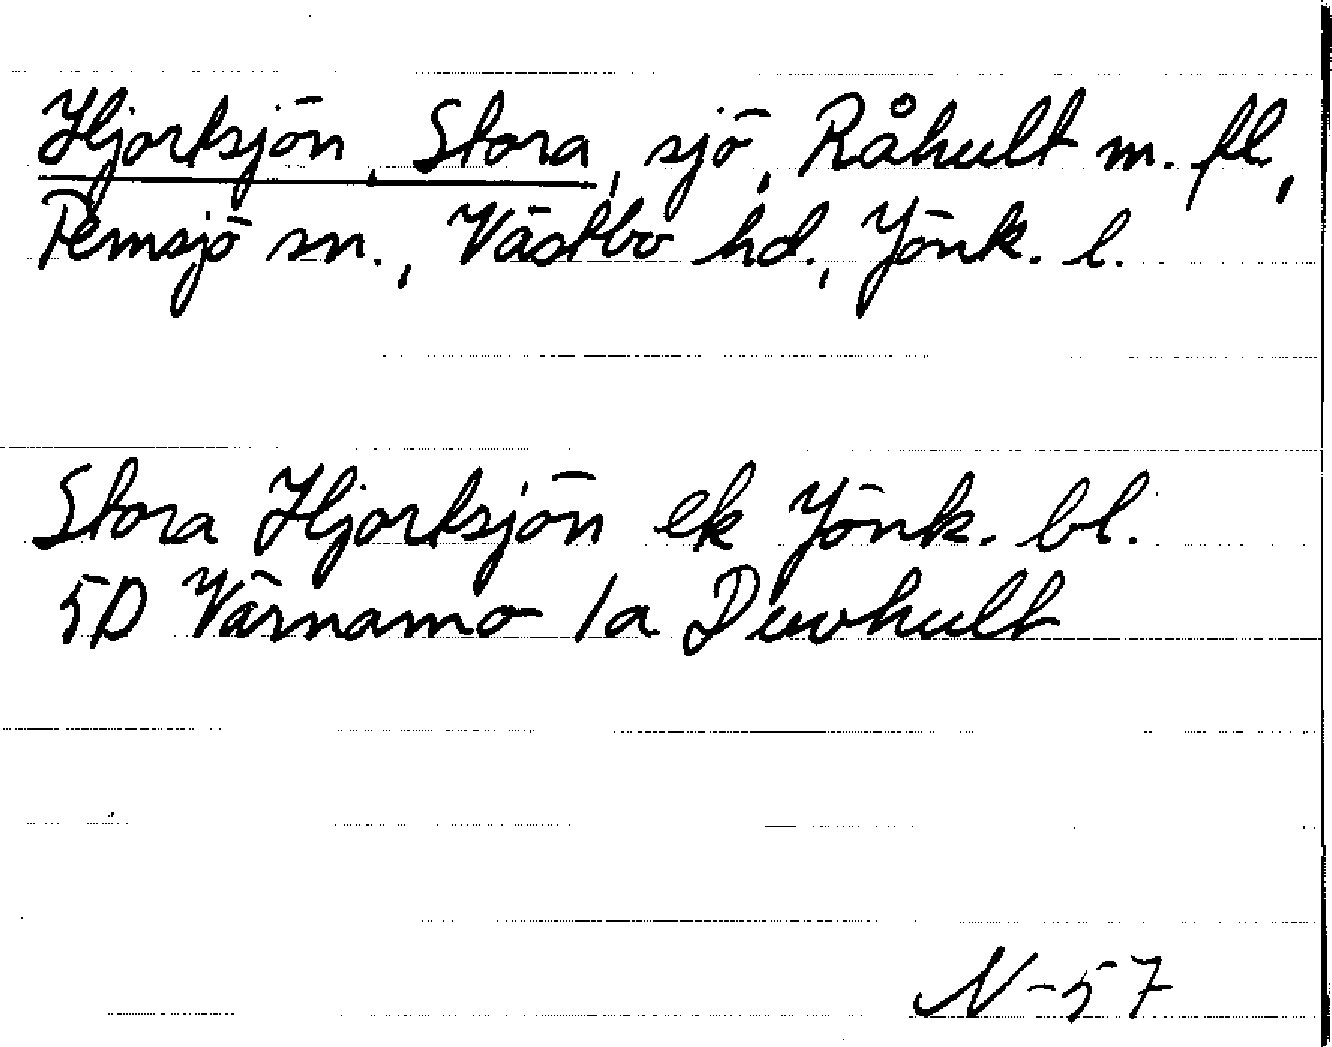 Hjortsjön, Stora, sjö, Råhult m. fl,
Femsjö sn., Västbo hd., Jönk. l.
Stora Hjortsjön ek Jönk. bl.
5D Värnamo 1a Duvhult
N-57